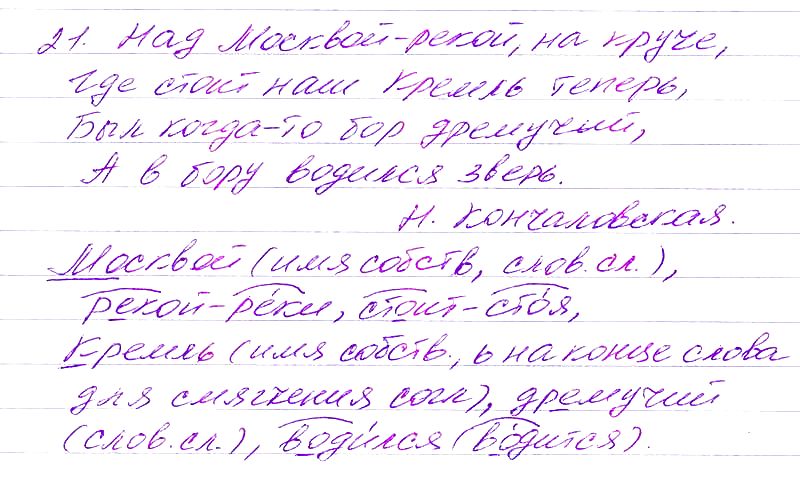 21. Над Москвой-рекой, на круче,
Где стоит наш Кремль теперь,
Был когда-то бор дремучий,
А в бору водился зверь.
Н. Кончаловская.
Москвой (имя собств, слов. сл.),
рекой-ре́ки, стоит-сто́я,
Кремль (имя собств., ь на конце слова
для смягчения согл), дремучий
(слов. сл.), води́лся (во́дится).